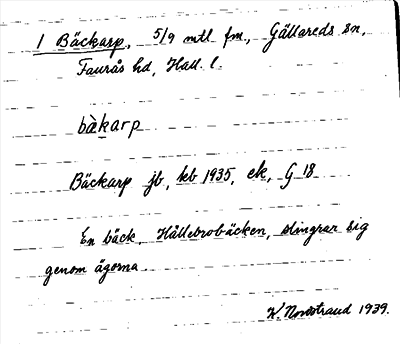 1 Bäckarp, 5/9 mtl fm., Gällareds sn,
Faurås hd, Hall. l.
bàkarp
Bäckarp jb, kb 1935, ek, G 18
En bäck, Hållebrobäcken, slingrar sig
genom ägorna.
K Nordstrand 1939.